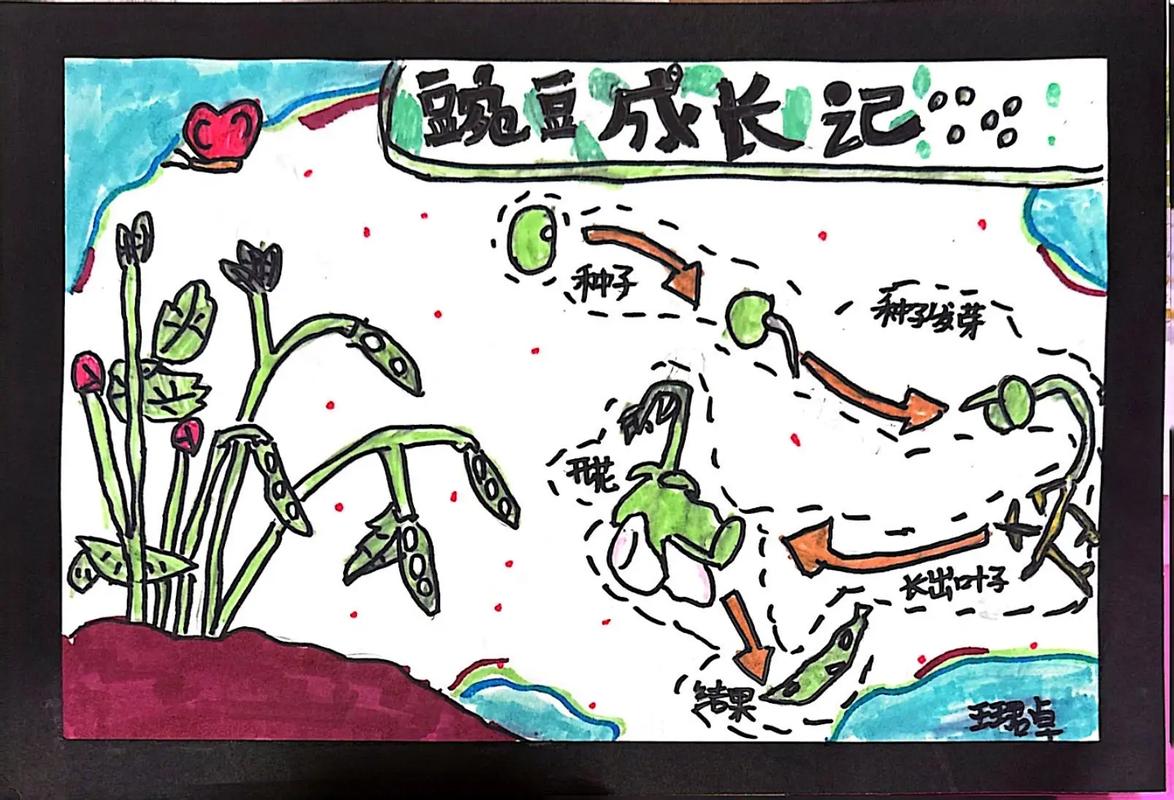 豌豆成长记
种子
种子发芽
开花
长出叶子
结果
王珺卓